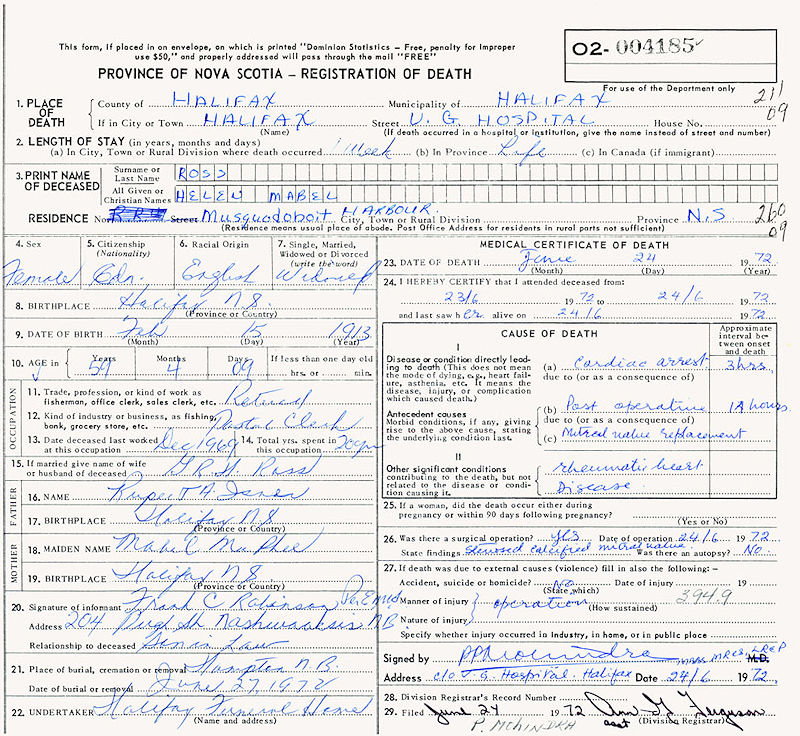 This form, if placed in an envelope, on which is printed "Dominion Statistics — Free, penalty for improper
use $50," and properly addressed will pass through the mail "FREE"
O2- 004185
PROVINCE OF NOVA SCOTIA — REGISTRATION OF DEATH
For use of the Department only
211
09
1. PLACE OF DEATH
County of HALIFAX Municipality of HALIFAX
If in City or Town HALIFAX Street V. G. HOSPITAL House No.
(Name) (If death occurred in a hospital or institution, give the name instead of street and number)
2. LENGTH OF STAY (in years, months and days)
(a) In City, Town or Rural Division where death occurred 1 week (b) In Province Life (c) In Canada (if immigrant)
3. PRINT NAME OF DECEASED
Surname or Last Name ROSS
All Given or Christian Names HELEN MABEL
RESIDENCE No. Street Musquodoboit HARBOUR. City, Town or Rural Division Province N.S
260
09
(Residence means usual place of abode. Post Office Address for residents in rural parts not sufficient)
4. Sex 5. Citizenship (Nationality) 6. Racial Origin 7. Single, Married, Widowed or Divorced (write the word)
Female Cdn. English Widowed
8. BIRTHPLACE Halifax N.S.
(Province or Country)
9. DATE OF BIRTH Feb 15 1913
(Month) (Day) (Year)
10. AGE in Years 59 Months 4 Days 09 If less than one day old hrs. or min.
OCCUPATION
11. Trade, profession, or kind of work as fisherman, office clerk, sales clerk, etc. Retired
12. Kind of industry or business, as fishing, bank, grocery store, etc. Postal Clerk
13. Date deceased last worked at this occupation Dec 1969 14. Total yrs. spent in this occupation 20 yrs
15. If married give name of wife or husband of deceased G.R.H. Ross
FATHER
16. NAME Rupert A
17. BIRTHPLACE Halifax N.S.
(Province or Country)
MOTHER
18. MAIDEN NAME Mabel MacPhee
19. BIRTHPLACE Halifax N.S.
(Province or Country)
20. Signature of informant Frank C Robinson
Address 204 Nashwaaksis N.B.
Relationship to deceased Son in Law
21. Place of burial, cremation or removal Hampton N.B.
Date of burial or removal June 27, 1972
22. UNDERTAKER Halifax Funeral Home
(Name and address)
MEDICAL CERTIFICATE OF DEATH
23. DATE OF DEATH June 24 1972
(Month) (Day) (Year)
24. I HEREBY CERTIFY that I attended deceased from:
23/6 1972 to 24/6 1972
and last saw her alive on 24/6 1972
CAUSE OF DEATH
Approximate interval between onset and death
I
Disease or condition directly leading to death (This does not mean the mode of dying, e.g., heart failure, asthenia, etc. It means the disease, injury, or complication which caused death.)
(a) Cardiac arrest 3hrs.
due to (or as a consequence of)
Antecedent causes
Morbid conditions, if any, giving rise to the above cause, stating the underlying condition last.
(b) Post operative 18 hours
due to (or as a consequence of)
(c) Mitral valve replacement
II
Other significant conditions contributing to the death, but not related to the disease or condition causing it.
rheumatic heart
Disease
25. If a woman, did the death occur either during pregnancy or within 90 days following pregnancy?
(Yes or No)
26. Was there a surgical operation? yes Date of operation 24/6 1972
State findings Stenosed calcified mitral valve Was there an autopsy? No.
27. If death was due to external causes (violence) fill in also the following:—
Accident, suicide or homicide? No Date of injury 19
(State which)
Manner of injury operation 394.9
(How sustained)
Nature of injury
Specify whether injury occurred in industry, in home, or in public place
Signed by PP Mohindra MRCS, LRCP M.D.
Address c/o V.G. Hospital. Halifax Date 24/6 1972
28. Division Registrar's Record Number
29. Filed June 24 1972 Ann G Ferguson
P. MOHINDRA asst (Division Registrar)